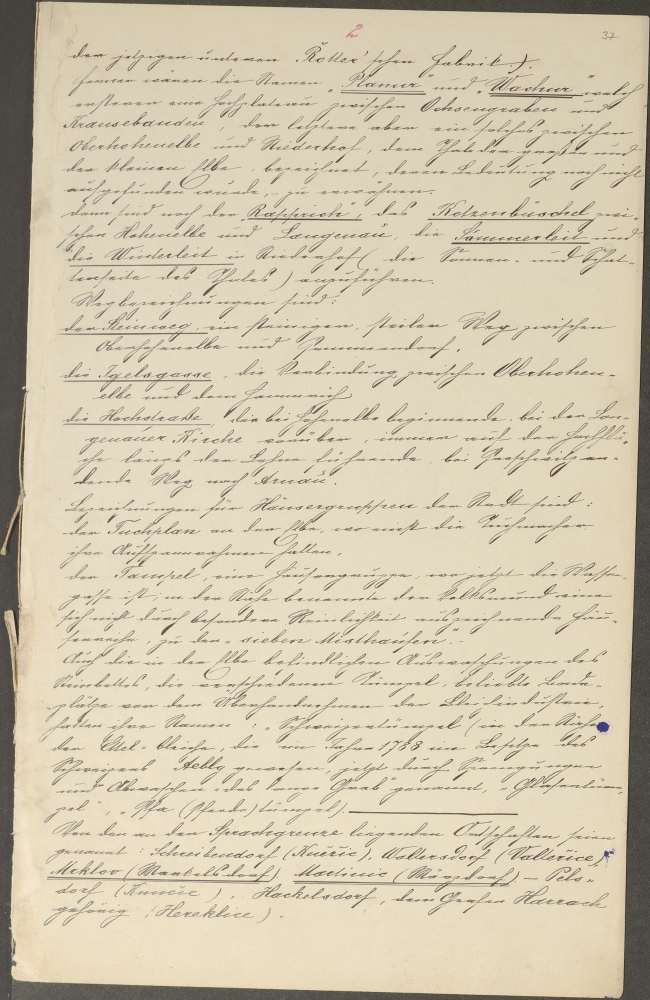 2
37
der jetzigen unteren "Rotter'schen Fabrik).
Ferner wären die Namen "Planur" und "Wachur", welch
ersterer eine Hochplateau zwischen Ochsengraben und
Krausebauden, der letztere aber ein solches zwischen
Oberhohenelbe und Niederhof, dem Thale der großen und
der kleinen Elbe, bezeichnet, deren Bedeutung noch nicht
aufgefunden wurde, zu erwähnen.
Dann sind noch der "Rapprich", das Kotzenbüschel zwi-
schen Hohenelbe und Langenau, die Sommerleit und
die Winterleit in Niederhof (die Sonnen- und Schat-
tenseite des Thales) anzuführen.
Wegbezeichnungen sind:
der Steinweg, ein steiniger, steiler Weg zwischen
Oberhohenelbe und Pommerndorf,
die Igelsgasse, die Verbindung zwischen Oberhohen-
elbe und dem
die Hochstraße, die bei Hohenelbe beginnende, bei der Lan-
genauer Kirche vorüber, immer auf der Hochflä-
che längs der Lehne führende, bei
dende Weg nach Arnau.
Bezeichnungen für Häusergruppen der Stadt sind:
der Tuchplan an der Elbe, wo einst die Tuchmacher
ihre Aufspannrahmen hatten,
der Tampel, eine Häusergruppe, wo jetzt die Wasser-
gasse ist; in der Nähe benannte der Volksmund eine
sich nicht durch besondere Reinlichkeit auszeichnende Häu-
serreihe, zu den "sieben Misthaufen".
Auch die in der Elbe befindlichen Auswaschungen des
Rinnbettes, die verschiedenen Tümpel, beliebte Bade-
plätze vor dem Überhandnehmen der Bleichindustrie,
hatten ihre Namen: "Schweizertümpel (in der Nähe
der Elbe-Bleiche, die im Jahre 1788 im Besitze des
Schweizers Aebly gewesen, jetzt durch Sprengungen
und Abwaschen "das lange Grab" genannt, "Glasertüm-
pel", "Pfar (Pferde) tümpel).
Von den an der Sprachgrenze liegenden Ortschaften seien
genannt: Schreibendorf (Kunčic), Waltersdorf (Valteřice),
Moklov (Mankelsdorf), Martinic (Märzdorf) – Pels-
dorf (Kunčic), Hackelsdorf, dem Grafen Harrach
gehörig (Hereklice).